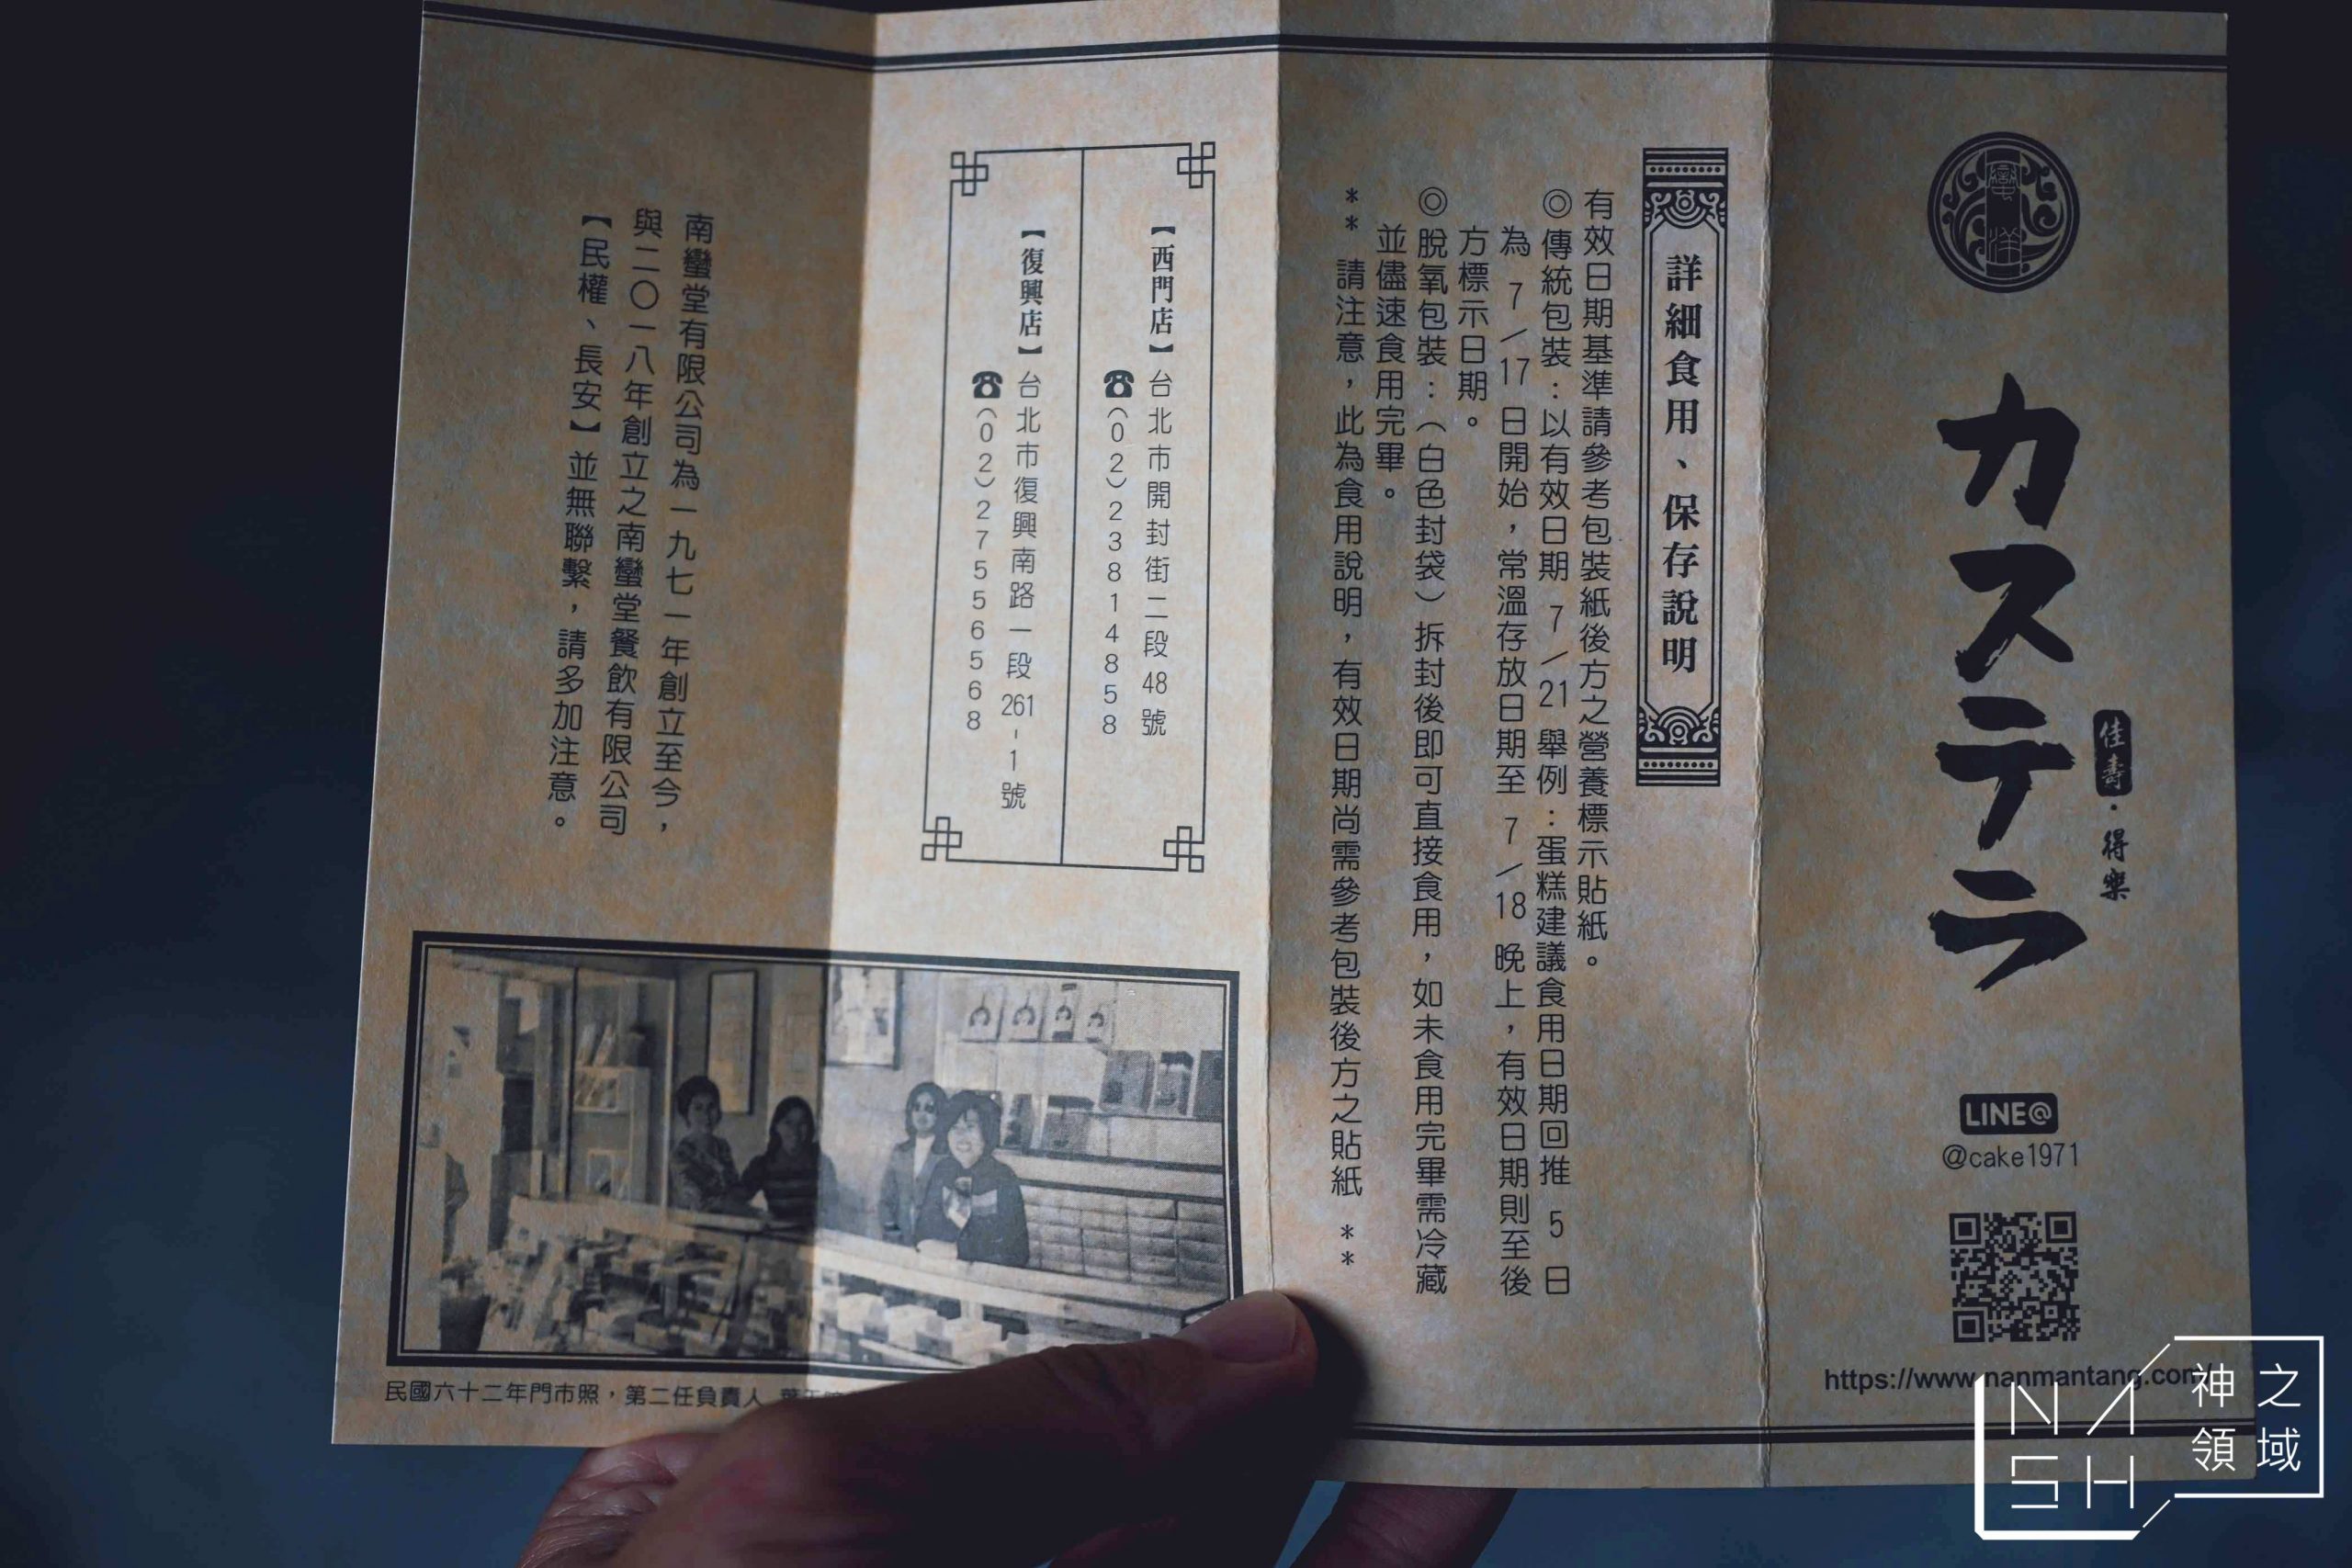 カステラ
佳壽・得樂
LINE@
@cake1971
https://www.nanmantang.com/
詳細食用、保存說明
有效日期基準請參考包裝紙後方之營養標示貼紙。
◎傳統包裝：以有效日期 7／21 舉例：蛋糕建議食用日期回推 5 日
為 7／17 日開始，常溫存放日期至 7／18 晚上，有效日期則至後
方標示日期。
◎脫氧包裝：（白色封袋）拆封後即可直接食用，如未食用完畢需冷藏
並儘速食用完畢。
** 請注意，此為食用說明，有效日期尚需參考包裝後方之貼紙 **
【西門店】台北市開封街二段48號
☎(02)23814858
【復興店】台北市復興南路一段261-1號
☎(02)27556568
南蠻堂有限公司為一九七一年創立至今，
與二〇一八年創立之南蠻堂餐飲有限公司
【民權、長安】並無聯繫，請多加注意。
民國六十二年門市照，第二任負責人
NASH
神之領域